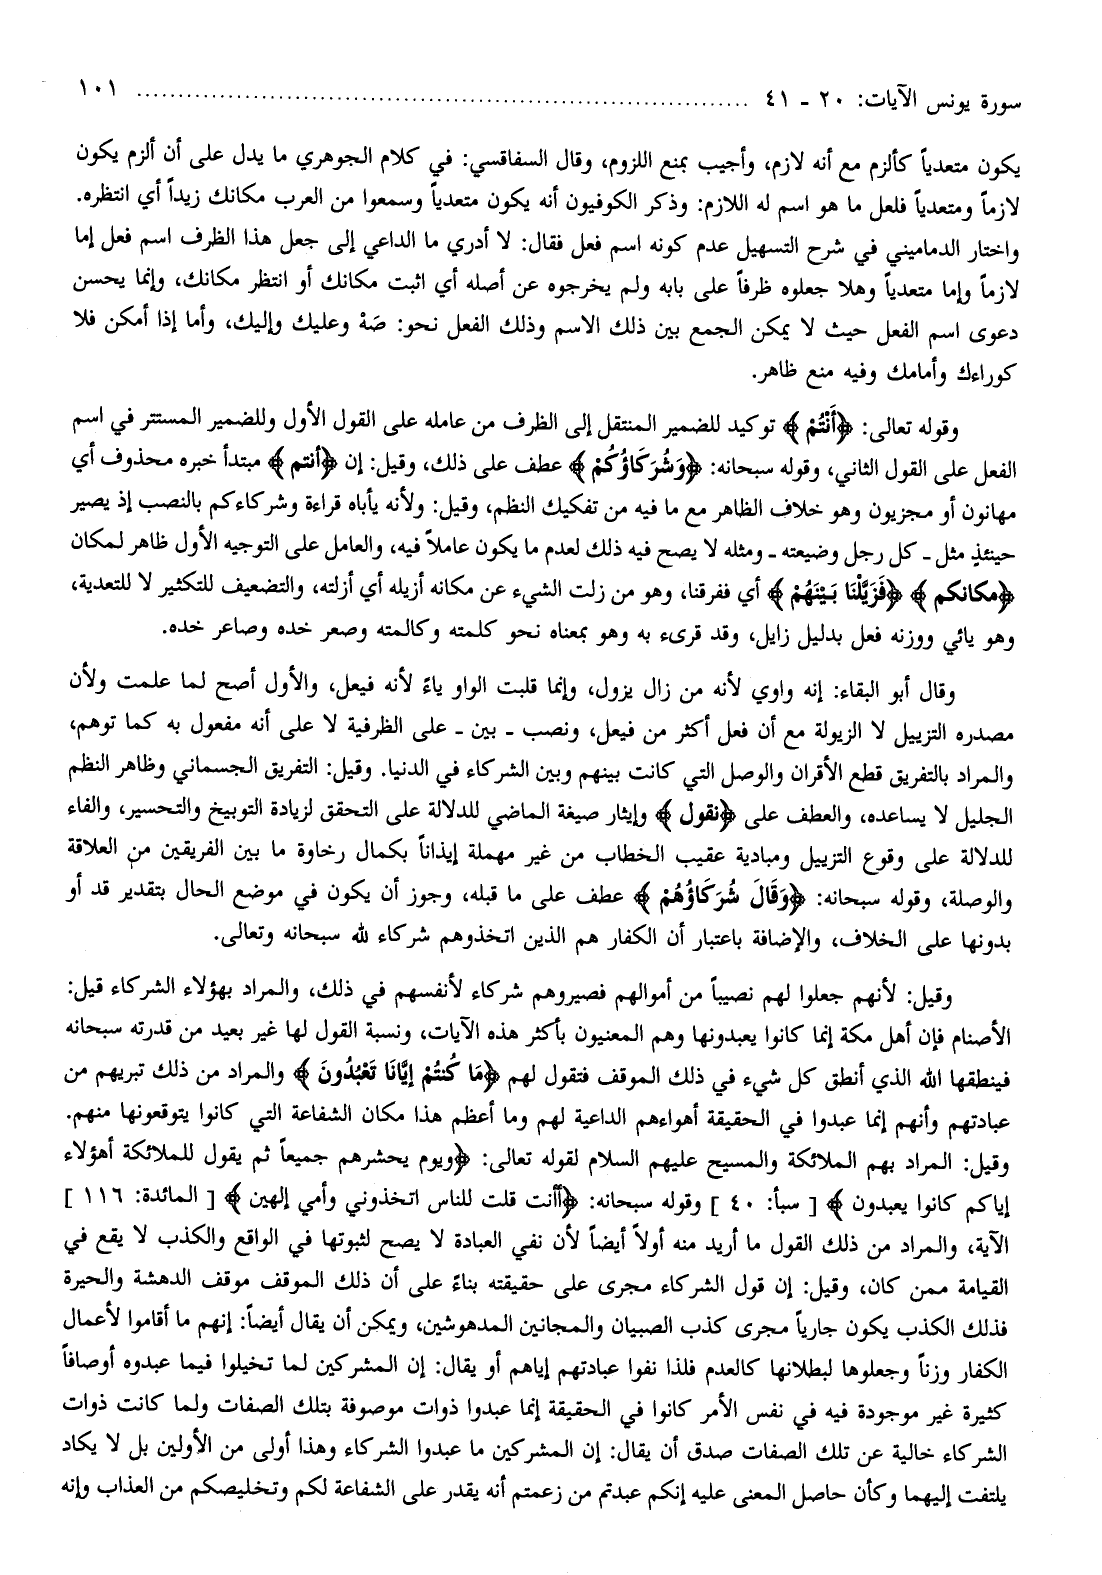 سورة يونس الآيات: ٢٠ ـ ٤١ ........................................................................ ١٠١
يكون متعدياً كألزم مع أنه لازم، وأجيب بمنع اللزوم، وقال السفاقسي: في كلام الجوهري ما يدل على أن ألزم يكون
لازماً ومتعدياً فلعل ما هو اسم له اللازم: وذكر الكوفيون أنه يكون متعدياً وسمعوا من العرب مكانك زيداً أي انتظره.
واختار الدماميني في شرح التسهيل عدم كونه اسم فعل فقال: لا أدري ما الداعي إلى جعل هذا الظرف اسم فعل إما
لازماً وإما متعدياً وهلا جعلوه ظرفاً على بابه ولم يخرجوه عن أصله أي اثبت مكانك أو انتظر مكانك، وإنما يحسن
دعوى اسم الفعل حيث لا يمكن الجمع بين ذلك الاسم وذلك الفعل نحو: صَهْ وعليك وإليك، وأما إذا أمكن فلا
كوراءك وأمامك وفيه منع ظاهر.
وقوله تعالى: ﴿أَنْتُمْ﴾ توكيد للضمير المنتقل إلى الظرف من عامله على القول الأول وللضمير المستتر في اسم
الفعل على القول الثاني، وقوله سبحانه: ﴿وَشُرَكَاؤُكُمْ﴾ عطف على ذلك، وقيل: إن ﴿أنتم﴾ مبتدأ خبره محذوف أي
مهانون أو مجزيون وهو خلاف الظاهر مع ما فيه من تفكيك النظم، وقيل: ولأنه يأباه قراءة وشركاءكم بالنصب إذ يصير
حينئذٍ مثل ـ كل رجل وضيعته ـ ومثله لا يصح فيه ذلك لعدم ما يكون عاملاً فيه، والعامل على التوجيه الأول ظاهر لمكان
﴿مكانكم﴾ ﴿فَزَيَّلْنَا بَيْنَهُمْ﴾ أي ففرقنا، وهو من زلت الشيء عن مكانه أزيله أي أزلته، والتضعيف للتكثير لا للتعدية،
وهو يائي ووزنه فعل بدليل زايل، وقد قرىء به وهو بمعناه نحو كلمته وكالمته وصعر خده وصاعر خده.
وقال أبو البقاء: إنه واوي لأنه من زال يزول، وإنما قلبت الواو ياءً لأنه فيعل، والأول أصح لما علمت ولأن
مصدره التزييل لا الزيولة مع أن فعل أكثر من فيعل، ونصب ـ بين ـ على الظرفية لا على أنه مفعول به كما توهم،
والمراد بالتفريق قطع الأقران والوصل التي كانت بينهم وبين الشركاء في الدنيا. وقيل: التفريق الجسماني وظاهر النظم
الجليل لا يساعده، والعطف على ﴿نقول﴾ وإيثار صيغة الماضي للدلالة على التحقق لزيادة التوبيخ والتحسير، والفاء
للدلالة على وقوع التزييل ومبادية عقيب الخطاب من غير مهملة إيذاناً بكمال رخاوة ما بين الفريقين من العلاقة
والوصلة، وقوله سبحانه: ﴿وَقَالَ شُرَكَاؤُهُمْ﴾ عطف على ما قبله، وجوز أن يكون في موضع الحال بتقدير قد أو
بدونها على الخلاف، والإضافة باعتبار أن الكفار هم الذين اتخذوهم شركاء لله سبحانه وتعالى.
وقيل: لأنهم جعلوا لهم نصيباً من أموالهم فصيروهم شركاء لأنفسهم في ذلك، والمراد بهؤلاء الشركاء قيل:
الأصنام فإن أهل مكة إنما كانوا يعبدونها وهم المعنيون بأكثر هذه الآيات، ونسبة القول لها غير بعيد من قدرته سبحانه
فينطقها الله الذي أنطق كل شيء في ذلك الموقف فتقول لهم ﴿مَا كُنتُمْ إيَّانَا تَعْبُدُونَ﴾ والمراد من ذلك تبريهم من
عبادتهم وأنهم إنما عبدوا في الحقيقة أهواءهم الداعية لهم وما أعظم هذا مكان الشفاعة التي كانوا يتوقعونها منهم.
وقيل: المراد بهم الملائكة والمسيح عليهم السلام لقوله تعالى: ﴿ويوم يحشرهم جميعاً ثم يقول للملائكة أهؤلاء
إياكم كانوا يعبدون﴾ [ سبأ: ٤٠ ] وقوله سبحانه: ﴿أأنت قلت للناس اتخذوني وأمي إلهين﴾ [ المائدة: ١١٦ ]
الآية، والمراد من ذلك القول ما أريد منه أولاً أيضاً لأن نفي العبادة لا يصح لثبوتها في الواقع والكذب لا يقع في
القيامة ممن كان، وقيل: إن قول الشركاء مجرى على حقيقته بناءً على أن ذلك الموقف موقف الدهشة والحيرة
فذلك الكذب يكون جارياً مجرى كذب الصبيان والمجانين المدهوشين، ويمكن أن يقال أيضاً: إنهم ما أقاموا لأعمال
الكفار وزناً وجعلوها لبطلانها كالعدم فلذا نفوا عبادتهم إياهم أو يقال: إن المشركين لما تخيلوا فيما عبدوه أوصافاً
كثيرة غير موجودة فيه في نفس الأمر كانوا في الحقيقة إنما عبدوا ذوات موصوفة بتلك الصفات ولما كانت ذوات
الشركاء خالية عن تلك الصفات صدق أن يقال: إن المشركين ما عبدوا الشركاء وهذا أولى من الأولين بل لا يكاد
يلتفت إليهما وكأن حاصل المعنى عليه إنكم عبدتم من زعمتم أنه يقدر على الشفاعة لكم وتخليصكم من العذاب وإنه